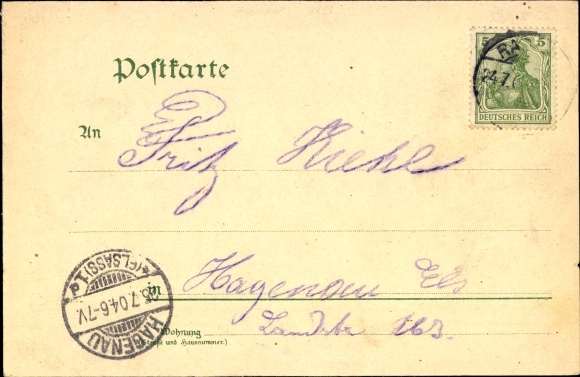 Postkarte
5 5
RA
24.7.
DEUTSCHES REICH
An Fritz Kiehl
in Hagenau Els
Wohnung
(Straße und Hausnummer.)
HAGENAU
(ELSASS) 1
25.7.04.6-7V.